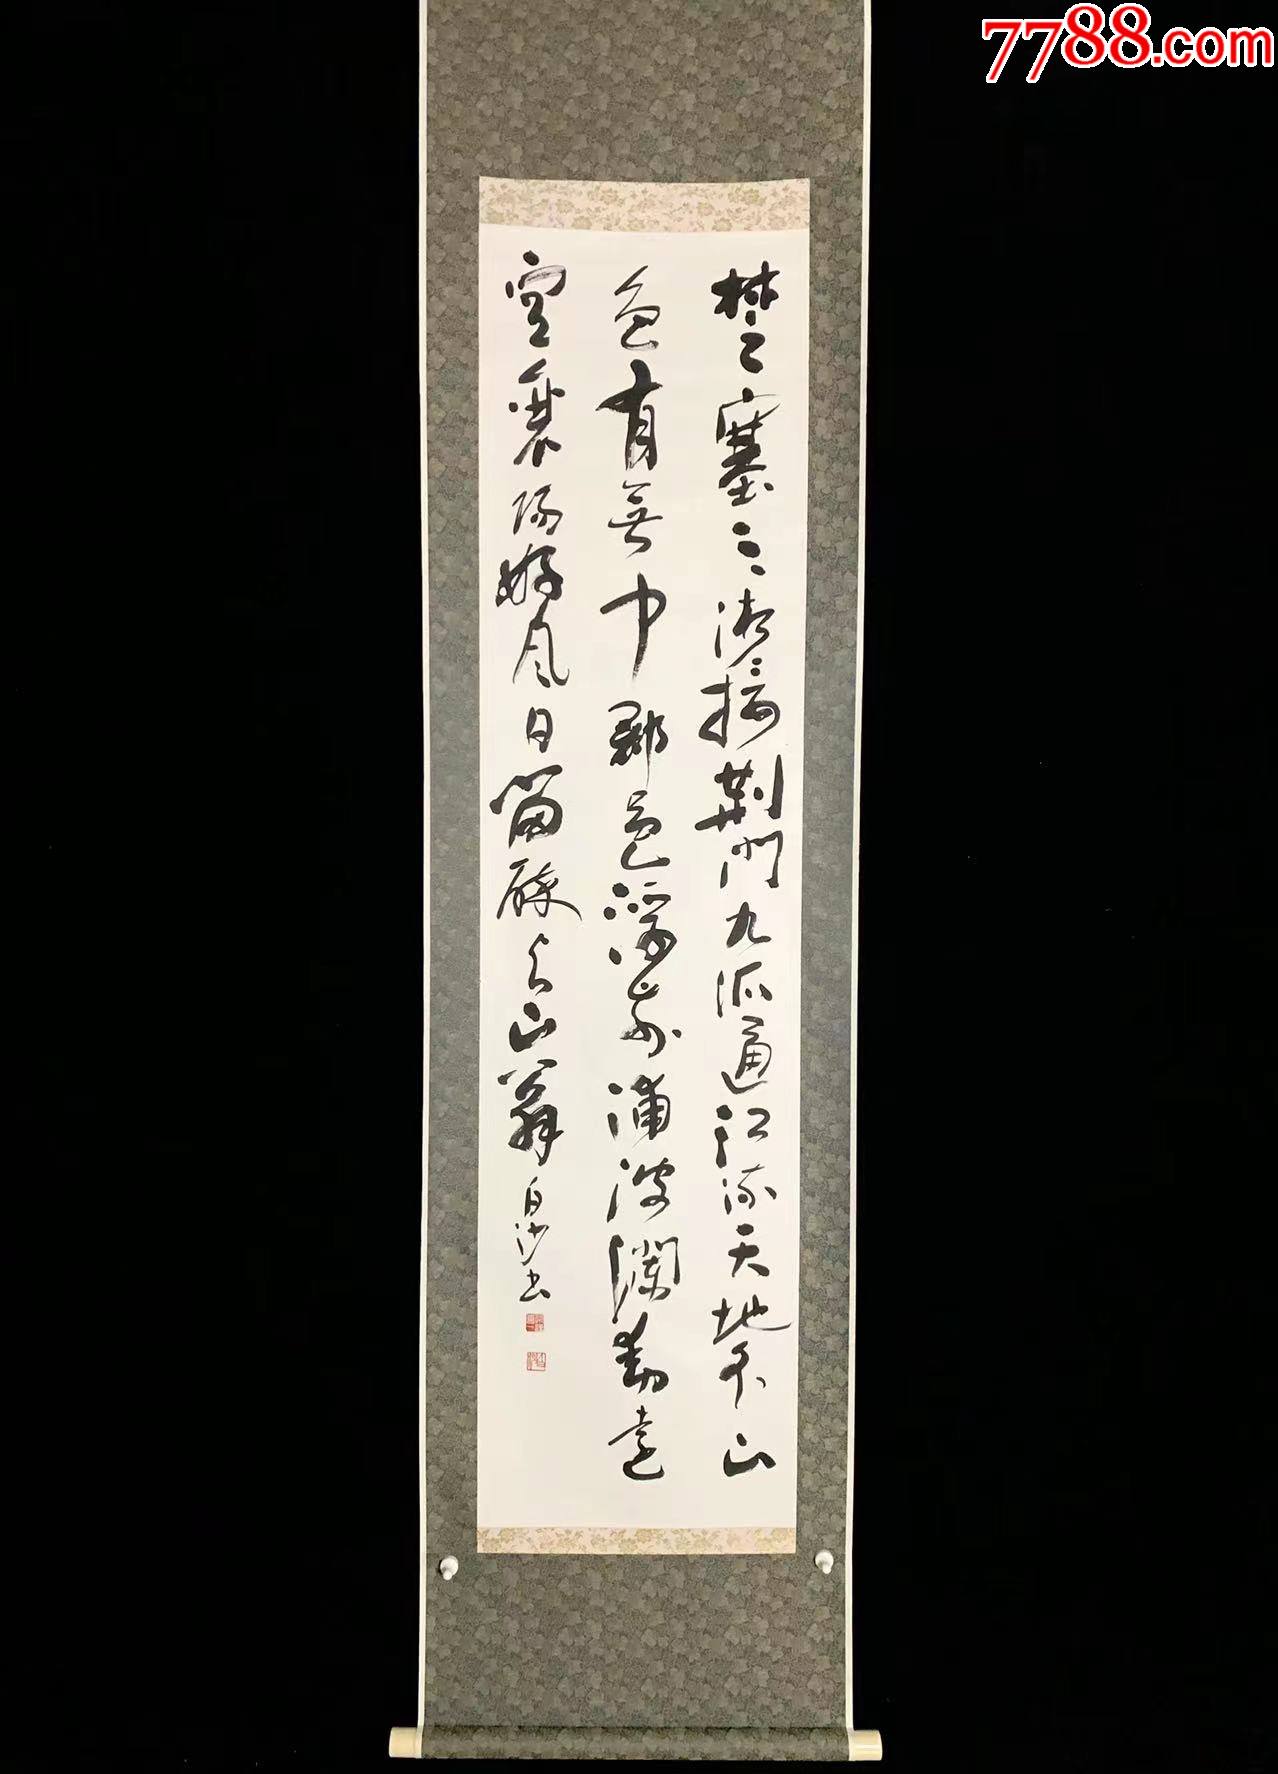 7788.com
楚塞三湘接荊門九派通江流天地外山
色有無中郡邑浮前浦波瀾動遠
空襄陽好風日留醉与山翁 白沙书